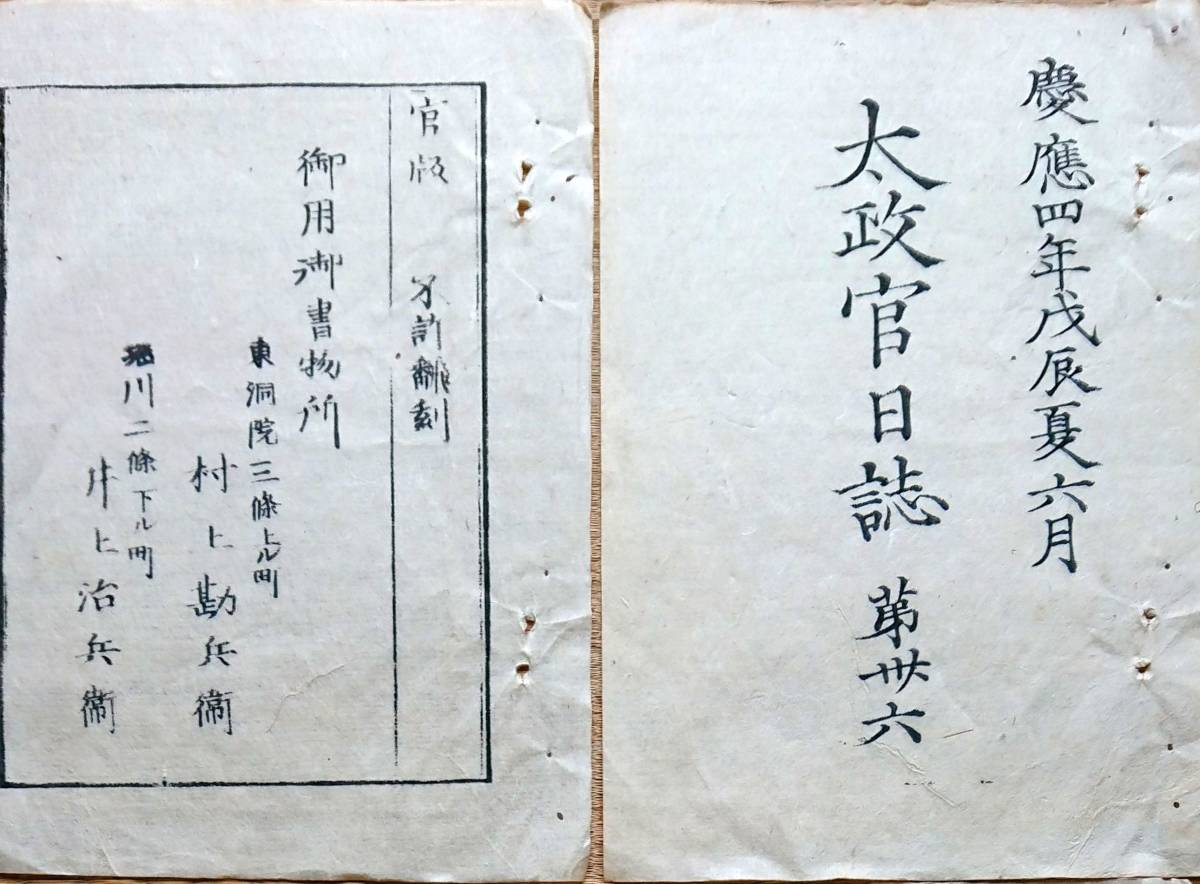 慶應四年戊辰夏六月
太政官日誌 第卅六
官版 不許翻刻
御用御書物所
東洞院三條上ル町
村上勘兵衞
堀川二條下ル町
井上治兵衞